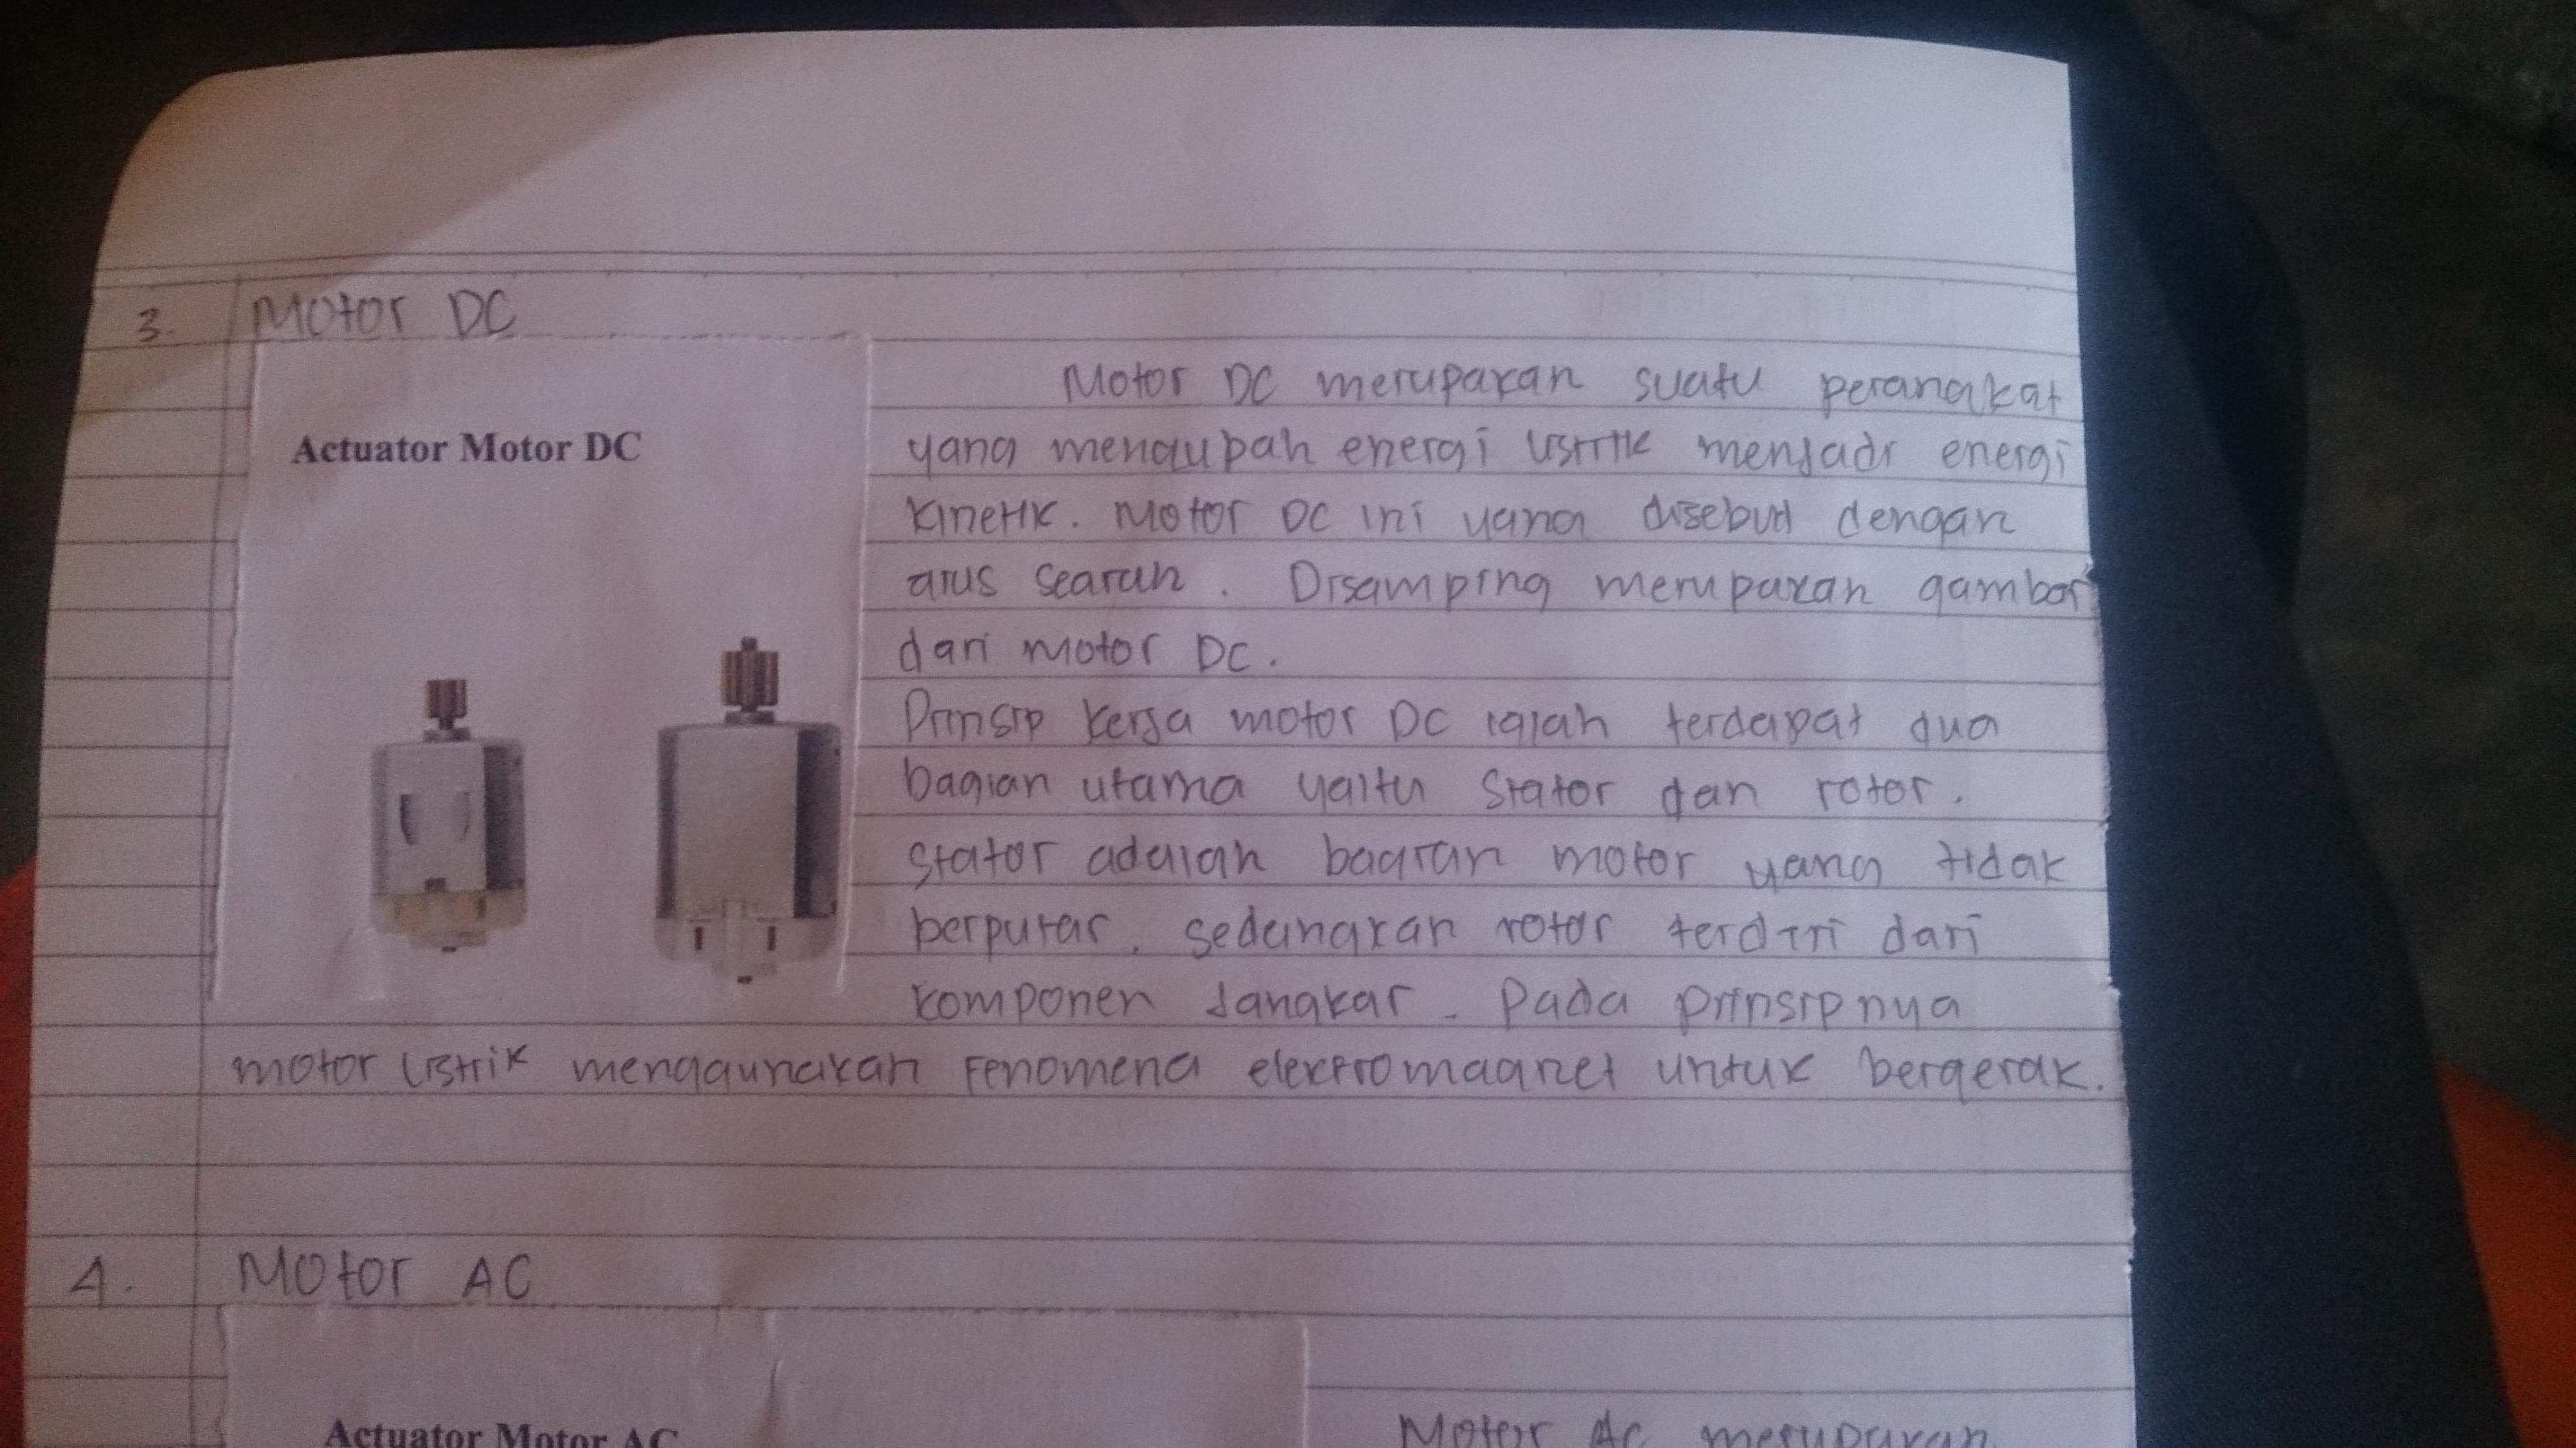 3. Motor DC
Actuator Motor DC
Motor DC merupakan suatu perangkat
yang mengubah energi listrik menjadi energi
kinetik. Motor DC ini yang disebut dengan
arus searah. Disamping merupakan gambar
dari motor DC.
Prinsip kerja motor DC ialah terdapat dua
bagian utama yaitu stator dan rotor.
Stator adalah bagian motor yang tidak
berputar, sedangkan rotor terdiri dari
komponen jangkar. Pada prinsipnya
motor listrik menggunakan Fenomena elektromagnet untuk bergerak.
4. Motor AC
Actuator Motor AC
Motor AC merupakan